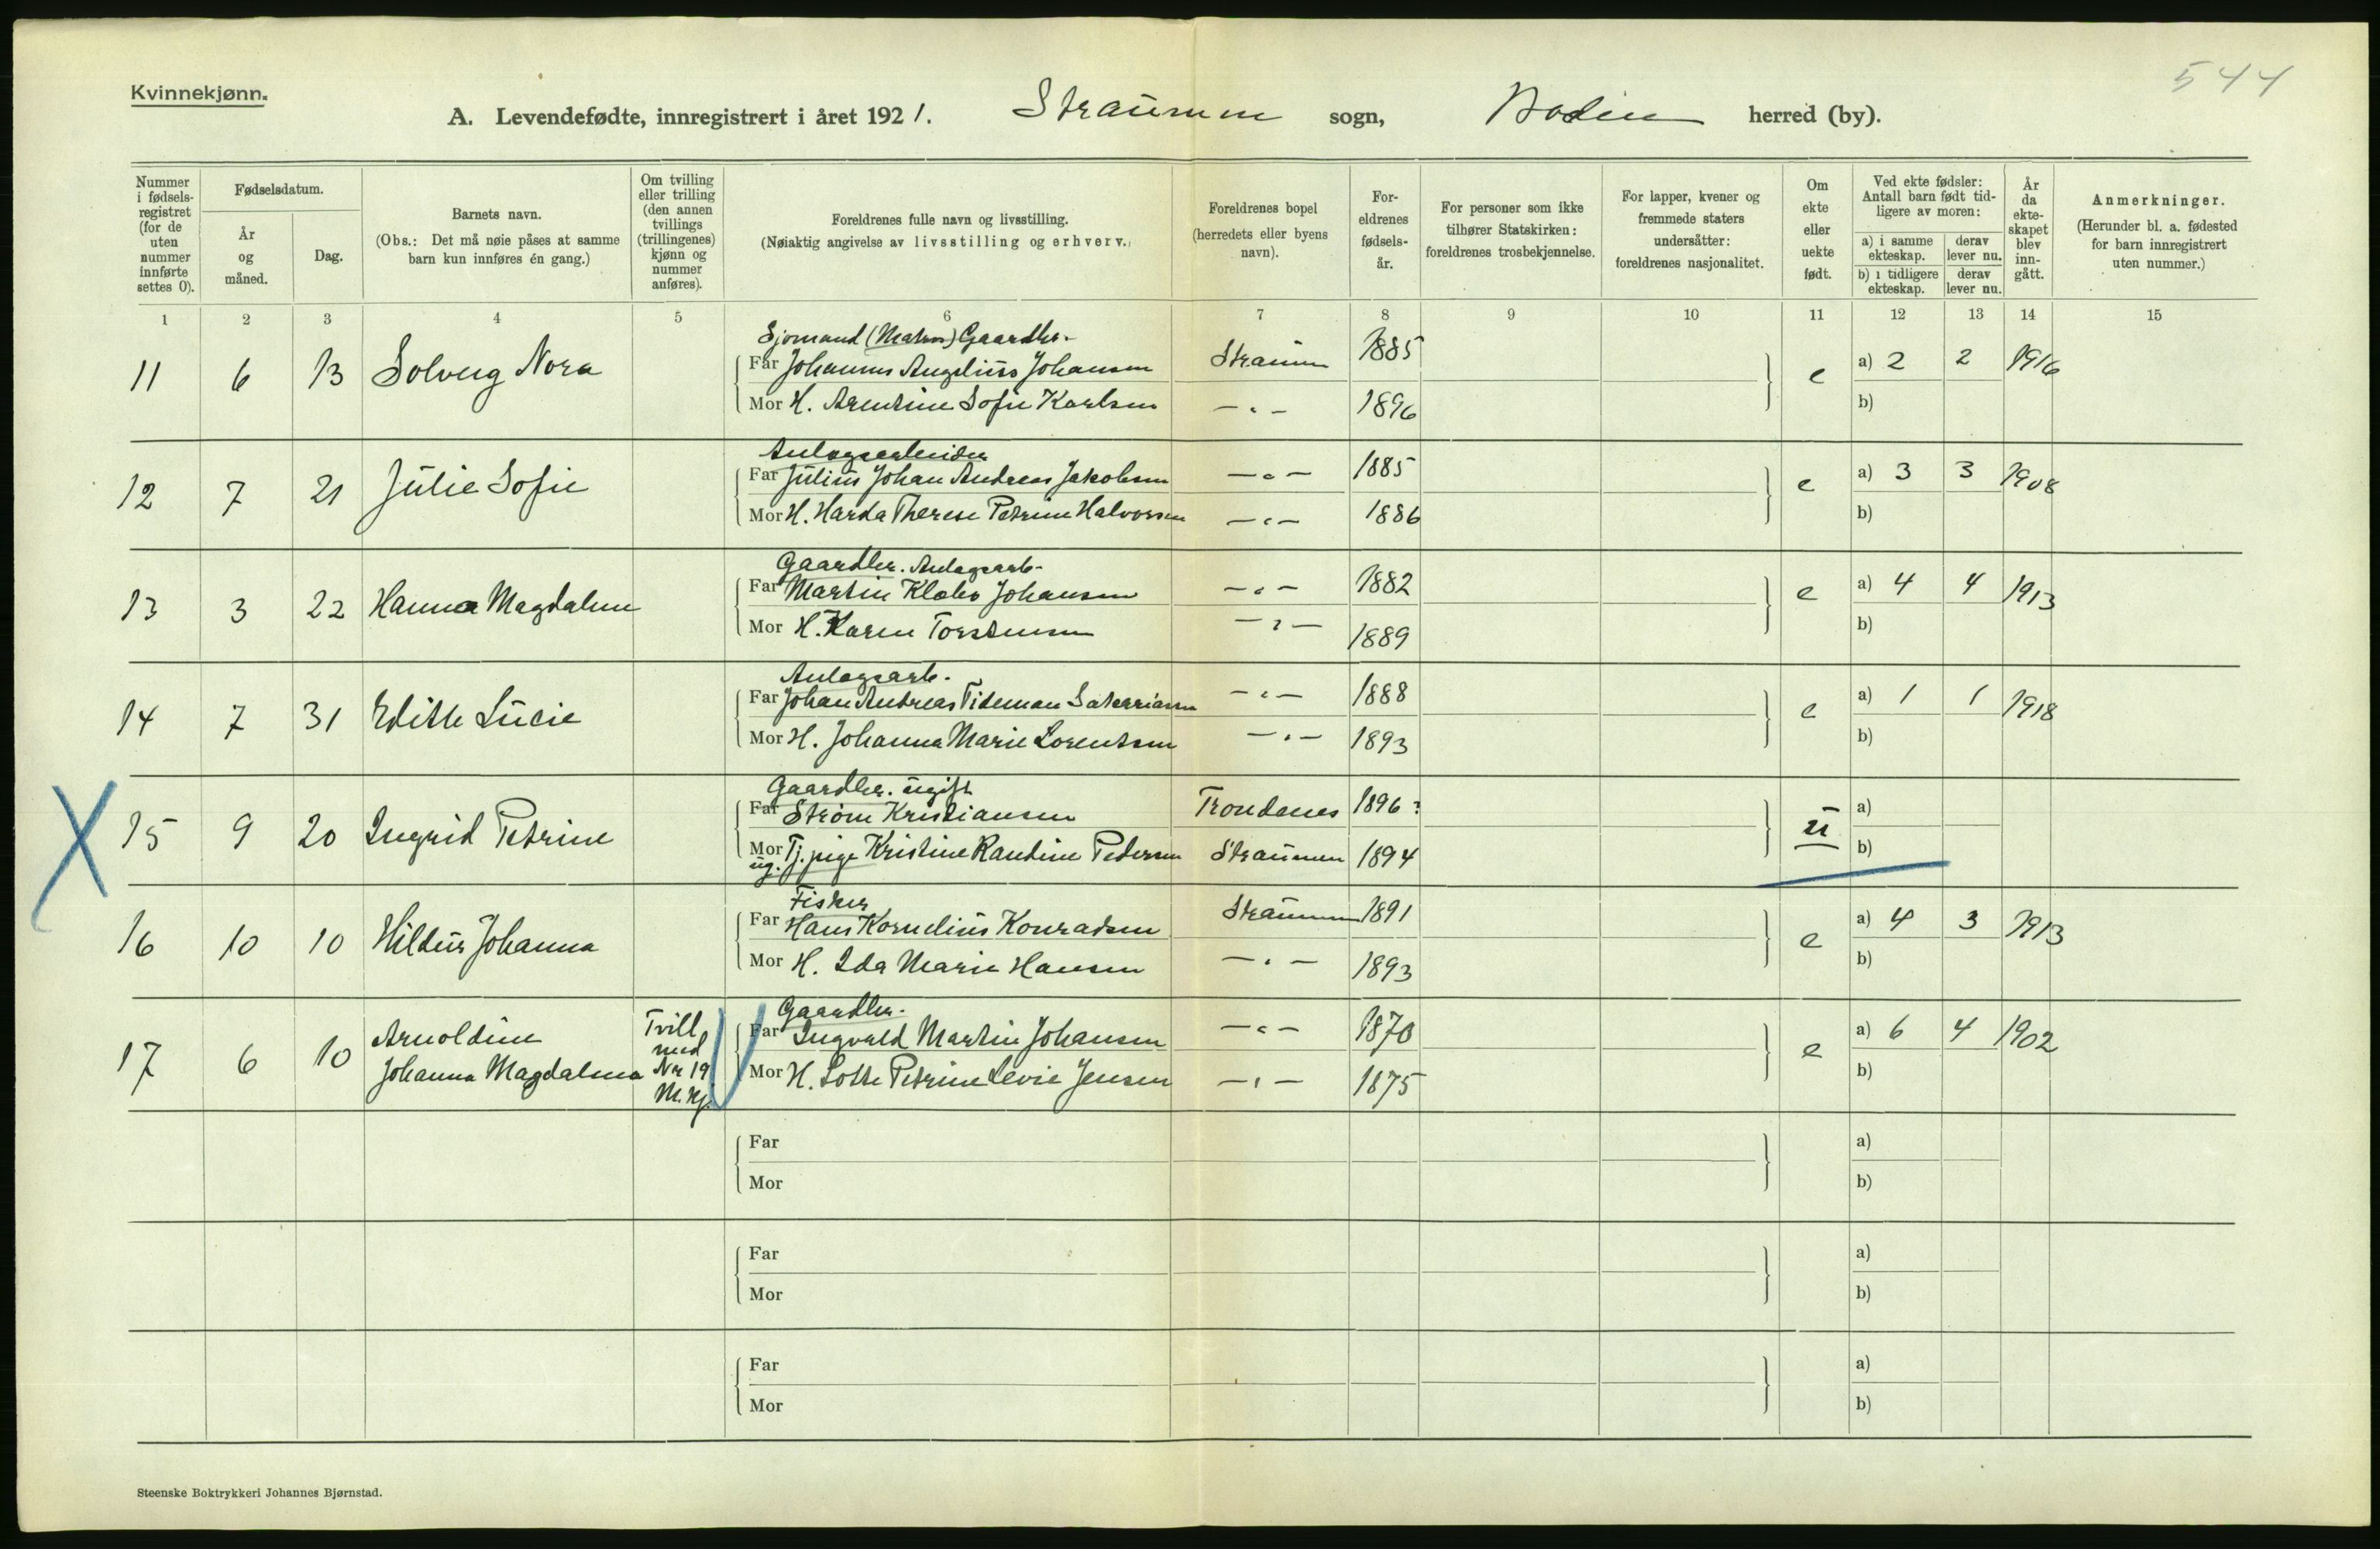 544
Kvinnekjønn.
A. Levendefødte, innregistrert i året 1921. Straumen sogn, Bodin herred (by).
Nummer i fødselsregistret (for de uten nummer innførte settes 0).
Fødselsdatum.
År og måned.
Dag.
Barnets navn.
(Obs.: Det må nøie påses at samme barn kun innføres én gang.)
Om tvilling eller trilling (den annen tvillings (trillingenes) kjønn og nummer anføres).
Foreldrenes fulle navn og livsstilling.
(Nøiaktig angivelse av livsstilling og erhverv.)
Foreldrenes bopel (herredets eller byens navn).
Foreldrenes fødselsår.
For personer som ikke tilhører Statskirken: foreldrenes trosbekjennelse.
For lapper, kvener og fremmede staters undersåtter: foreldrenes nasjonalitet.
Om ekte eller uekte født.
Ved ekte fødsler: Antall barn født tidligere av moren:
a) i samme ekteskap. derav lever nu.
b) i tidligere ekteskap. derav lever nu.
År da ekteskapet blev inngått.
Anmerkninger.
(Herunder bl. a. fødested for barn innregistrert uten nummer.)
1 2 3 4 5 6 7 8 9 10 11 12 13 14 15
Sjømand (Matros) Gaardbr.
11 6 13 Solveig Nora Far Johannes Angelius Johansen Straumen 1885 e a) 2 2 1916
Mor H. Arentine Sofie Karlsen -"- 1896 b)
Anlægsarbeider
12 7 21 Julie Sofie Far Julius Johan Andreas Jakobsen -"- 1885 e a) 3 3 1908
Mor H. Harda Therese Petrine Halvorsen -"- 1886 b)
Gaardbr. Anlægsarb.
13 3 22 Hanna Magdalene Far Martin Klæbo Johansen -"- 1882 e a) 4 4 1913
Mor H. Karen Torstensen -"- 1889 b)
Anlægsarb.
14 7 31 Edith Lucie Far Johan Andreas Tideman Sakariasen -"- 1888 e a) 1 1 1918
Mor H. Johanna Marie Lorentsen -"- 1893 b)
Gaardbr. ugift
X 15 9 20 Ingrid Petrine Far Strøm Kristiansen Trondenes 1896? u a)
Mor ug. Tj.pige Kristine Randine Pedersen Straumen 1894 b)
Fisker
16 10 10 Hildur Johanna Far Hans Kornelius Konradsen Straumen 1891 e a) 4 3 1913
Mor H. Ida Marie Hansen -"- 1893 b)
Gaardbr.
17 6 10 Arnoldine Johanna Magdalena Tvill. med Nr 19 M.kj. Far Ingvald Martin Johansen -"- 1870 e a) 6 4 1902
Mor H. Lotte Petrine Levie Jensen -"- 1875 b)
Far a)
Mor b)
Far a)
Mor b)
Far a)
Mor b)
Steenske Boktrykkeri Johannes Bjørnstad.